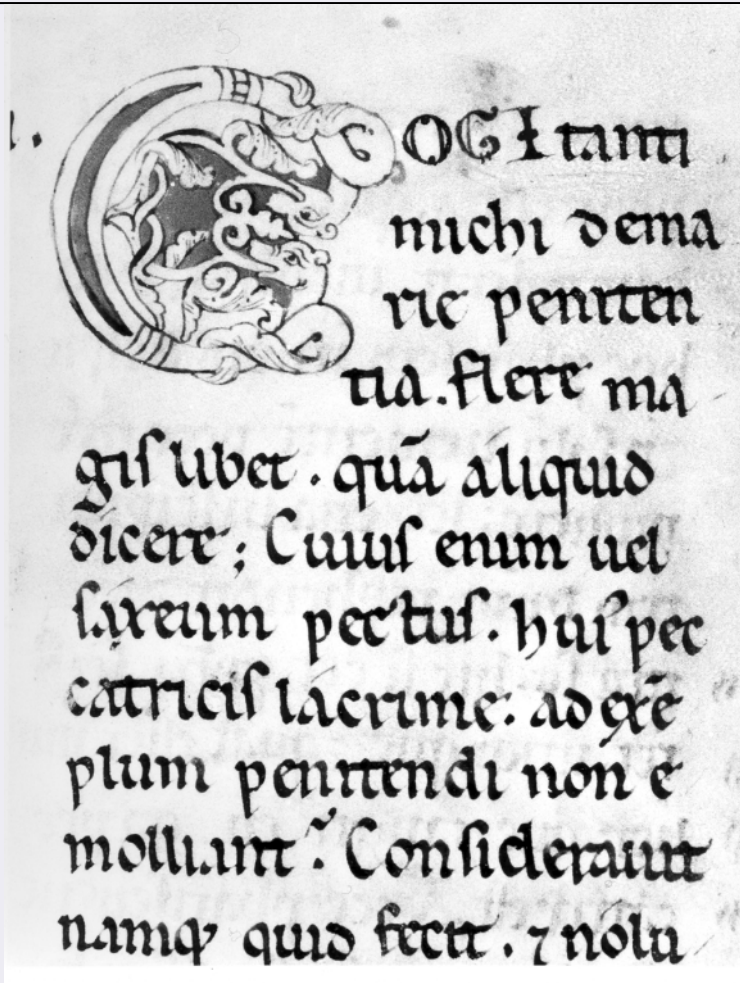 COGItanti
michi dema
rie peniten
tia. flere ma
gis libet. quā aliquid
dicere; Cuius enim uel
saxeum pectus. hui᾽ pec
catricis lacrime: ad exē
plum penitendi non e
molliant? Considerauit
namq; quid fecit. ⁊ nolu